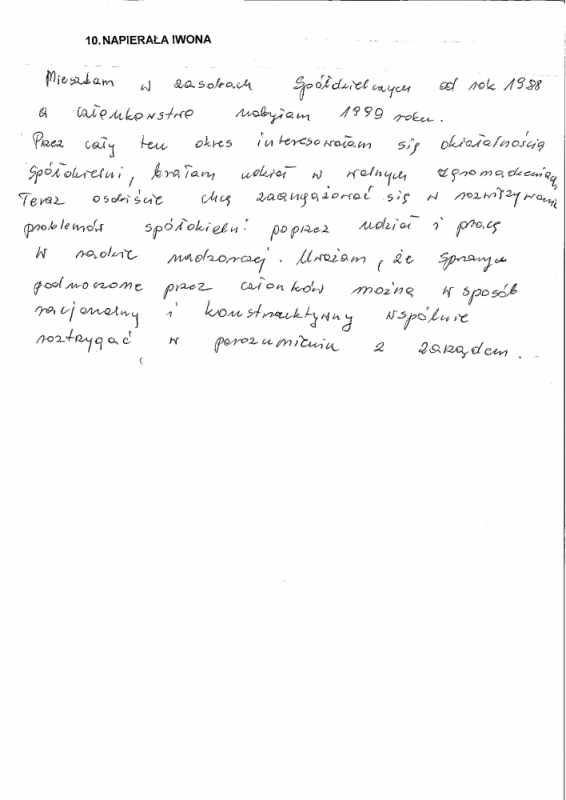 10. NAPIERAŁA IWONA
Mieszkam w zasobach Spółdzielczych od rok 1988
a członkowstwo nabyłam 1999 roku.
Przez cały ten okres interesowałam się działalnością
Spółdzielni, brałam udział w walnych zgromadzeniach
Teraz osobiście chcę zaangażować się w rozwiązywanie
problemów spółdzielni poprzez udział i pracę
W radzie nadzorczej. Uważam, że sprawy
podnoszone przez członków można w sposób
racjonalny i konstruktywny wspólnie
roztrzygać w porozumieniu z zarządem.